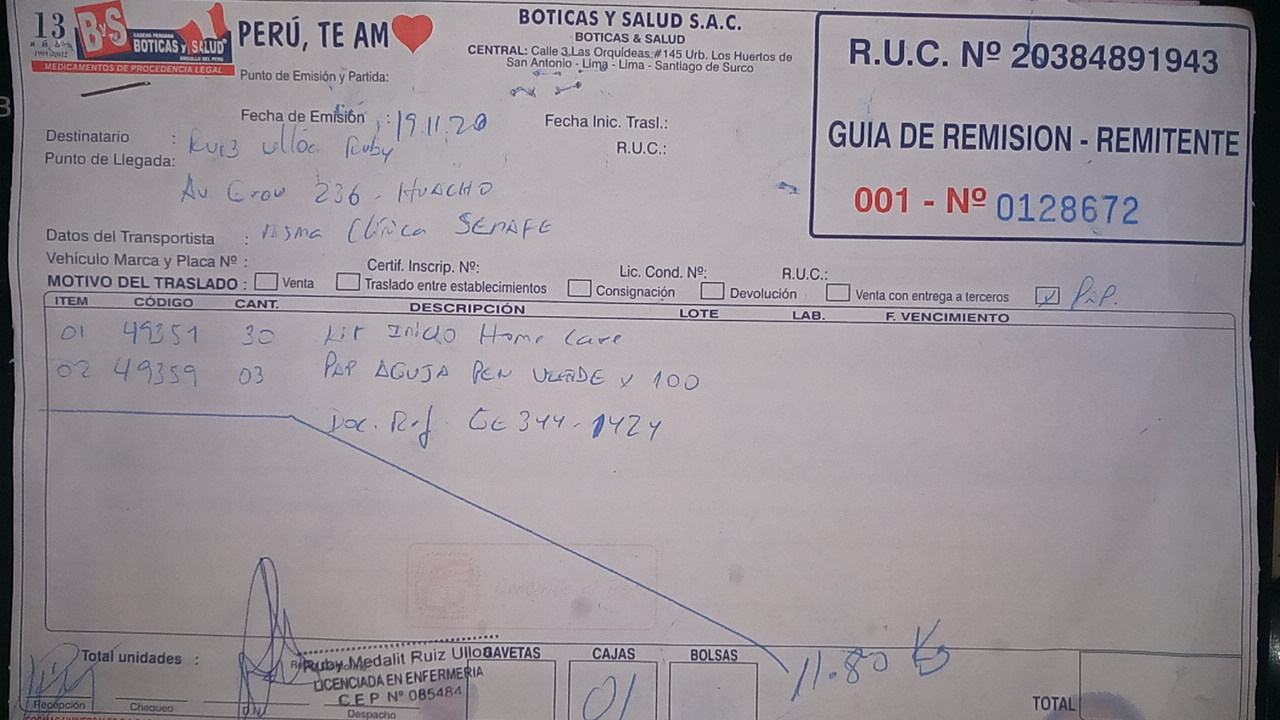 13
AÑOS
1999-2012
ByS
CADENA PERUANA
BOTICAS y SALUD
ORGULLO DEL PERÚ
MEDICAMENTOS DE PROCEDENCIA LEGAL
PERÚ, TE AM
BOTICAS Y SALUD S.A.C.
BOTICAS & SALUD
CENTRAL: Calle 3 Las Orquídeas #145 Urb. Los Huertos de
San Antonio - Lima - Lima - Santiago de Surco
R.U.C. Nº 20384891943
GUIA DE REMISION - REMITENTE
001 - Nº 0128672
Punto de Emisión y Partida:
Fecha de Emisión : 19.11.20
Fecha Inic. Trasl.:
Destinatario : Ruiz Ulloa Ruby
R.U.C.:
Punto de Llegada:
Av Grau 236 - HUACHO
Datos del Transportista : Misma Clínica SEMAFE
Vehículo Marca y Placa Nº :
Certif. Inscrip. Nº:
Lic. Cond. Nº:
R.U.C.:
MOTIVO DEL TRASLADO : Venta Traslado entre establecimientos Consignación Devolución Venta con entrega a terceros PAP.
ITEM CÓDIGO CANT. DESCRIPCIÓN LOTE LAB. F. VENCIMIENTO
01 49351 30 Kit Inicio Home Care
02 49359 03 PAP AGUJA PEN VERDE x 100
Doc. Ref. GE 344-1424
11.80 Kg
Total unidades :
Ruby Medalit Ruiz Ulloa
LICENCIADA EN ENFERMERIA
C.E.P. Nº 085484
GAVETAS CAJAS BOLSAS
01
TOTAL
Recepción Chequeo Despacho